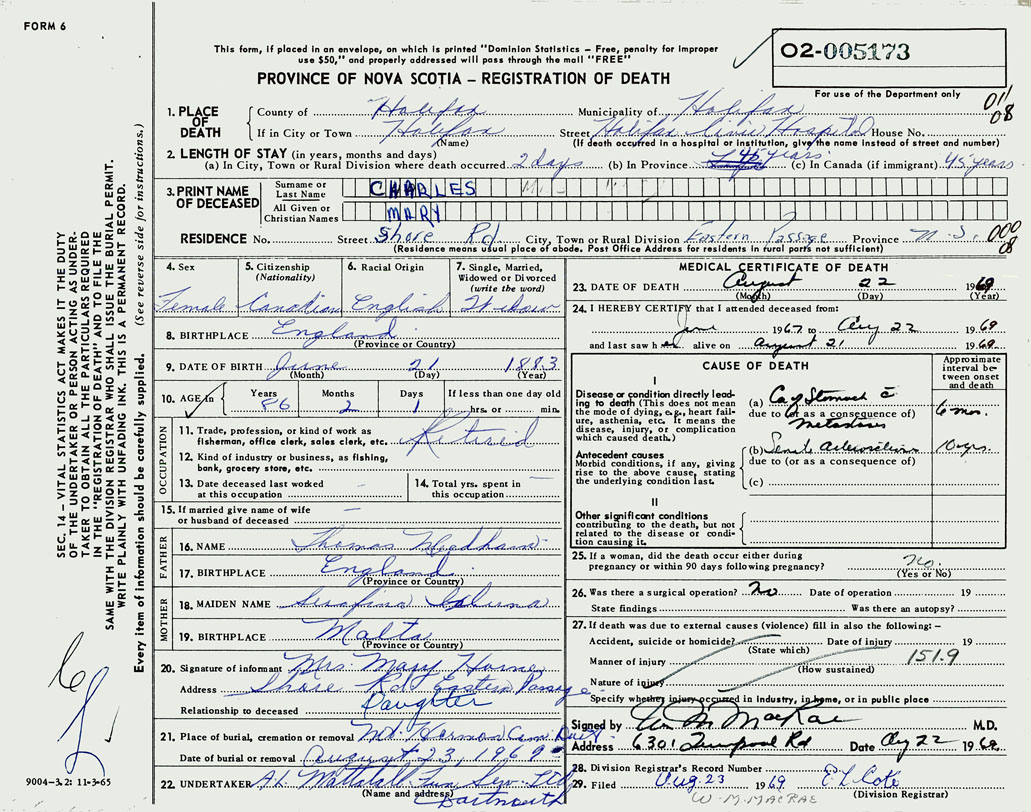 FORM 6
This form, if placed in an envelope, on which is printed "Dominion Statistics – Free, penalty for improper
use $50," and properly addressed will pass through the mail "FREE"
O2-005173
PROVINCE OF NOVA SCOTIA – REGISTRATION OF DEATH
For use of the Department only
011
08
1. PLACE OF DEATH
County of Halifax Municipality of Halifax
If in City or Town Halifax Street Halifax Civic Hospital House No.
(Name) (If death occurred in a hospital or institution, give the name instead of street and number)
2. LENGTH OF STAY (in years, months and days)
(a) In City, Town or Rural Division where death occurred 2 days (b) In Province 45 years (c) In Canada (if immigrant) 45 years
3. PRINT NAME OF DECEASED
Surname or Last Name CHARLES
All Given or Christian Names MARY
RESIDENCE No. Street Shore Rd City, Town or Rural Division Eastern Passage Province N.S.
000
08
(Residence means usual place of abode. Post Office Address for residents in rural parts not sufficient)
4. Sex
Female
5. Citizenship
(Nationality)
Canadian
6. Racial Origin
English
7. Single, Married,
Widowed or Divorced
(write the word)
Widow
8. BIRTHPLACE England
(Province or Country)
9. DATE OF BIRTH June 21 1883
(Month) (Day) (Year)
10. AGE in Years Months Days If less than one day old
86 2 1 hrs. or min.
OCCUPATION
11. Trade, profession, or kind of work as
fisherman, office clerk, sales clerk, etc. Retired
12. Kind of industry or business, as fishing,
bank, grocery store, etc.
13. Date deceased last worked
at this occupation –
14. Total yrs. spent in
this occupation –
15. If married give name of wife
or husband of deceased –
FATHER
16. NAME Thomas Needham
17. BIRTHPLACE England
(Province or Country)
MOTHER
18. MAIDEN NAME Serafina
19. BIRTHPLACE Malta
(Province or Country)
20. Signature of informant Mrs. Mary Horne
Address Shore Rd. Eastern Passage
Relationship to deceased Daughter
21. Place of burial, cremation or removal Mt. Hermon Cem. Dart
Date of burial or removal August 23, 1969
22. UNDERTAKER A.L. Mattatall Fun Serv. Ltd
(Name and address) Dartmouth
MEDICAL CERTIFICATE OF DEATH
23. DATE OF DEATH August 22 1969
(Month) (Day) (Year)
24. I HEREBY CERTIFY that I attended deceased from:
June 1967 to Aug 22 1969
and last saw her alive on August 21 1969
CAUSE OF DEATH
Approximate
interval between
onset
and death
I
Disease or condition directly leading
to death (This does not mean
the mode of dying, e.g., heart failure,
asthenia, etc. it means the
disease, injury, or complication
which caused death.)
(a) Ca of Stomach c̄
due to (or as a consequence of)
metastases
6 mos.
Antecedent causes
Morbid conditions, if any, giving
rise to the above cause, stating
the underlying condition last.
(b) Senile
due to (or as a consequence of)
10 yrs.
(c)
II
Other significant conditions
contributing to the death, but not
related to the disease or condition
causing it.
25. If a woman, did the death occur either during
pregnancy or within 90 days following pregnancy? No.
(Yes or No)
26. Was there a surgical operation? No Date of operation 19
State findings Was there an autopsy?
27. If death was due to external causes (violence) fill in also the following: –
Accident, suicide or homicide? Date of injury 19
(State which)
Manner of injury 151.9
(How sustained)
Nature of injury
Specify whether injury occurred in Industry, in home, or in public place
Signed by Wm M MacRae M.D.
Address 6301 Liverpool Rd Date Aug 22 1969
28. Division Registrar's Record Number
29. Filed Aug. 23 1969 E L Cote
(Division Registrar)
W. M. MACRAE
SEC. 14 – VITAL STATISTICS ACT MAKES IT THE DUTY
OF THE UNDERTAKER OR PERSON ACTING AS UNDERTAKER
TO OBTAIN ALL THE PARTICULARS REQUIRED
IN THE "REGISTRATION OF DEATH" AND TO FILE THE
SAME WITH THE DIVISION REGISTRAR WHO SHALL ISSUE THE BURIAL PERMIT.
WRITE PLAINLY WITH UNFADING INK. THIS IS A PERMANENT RECORD.
Every item of information should be carefully supplied. (See reverse side for instructions.)
9004–3.2: 11-3-65